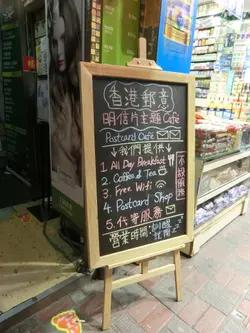 香港郵意
明信片主題Cafe
Postcard Cafe
↓我們提供↓
1. All Day Breakfast
2. Coffee & Tea
3. Free Wifi
4. Postcard Shop
5. 代寄服務
營業時間: